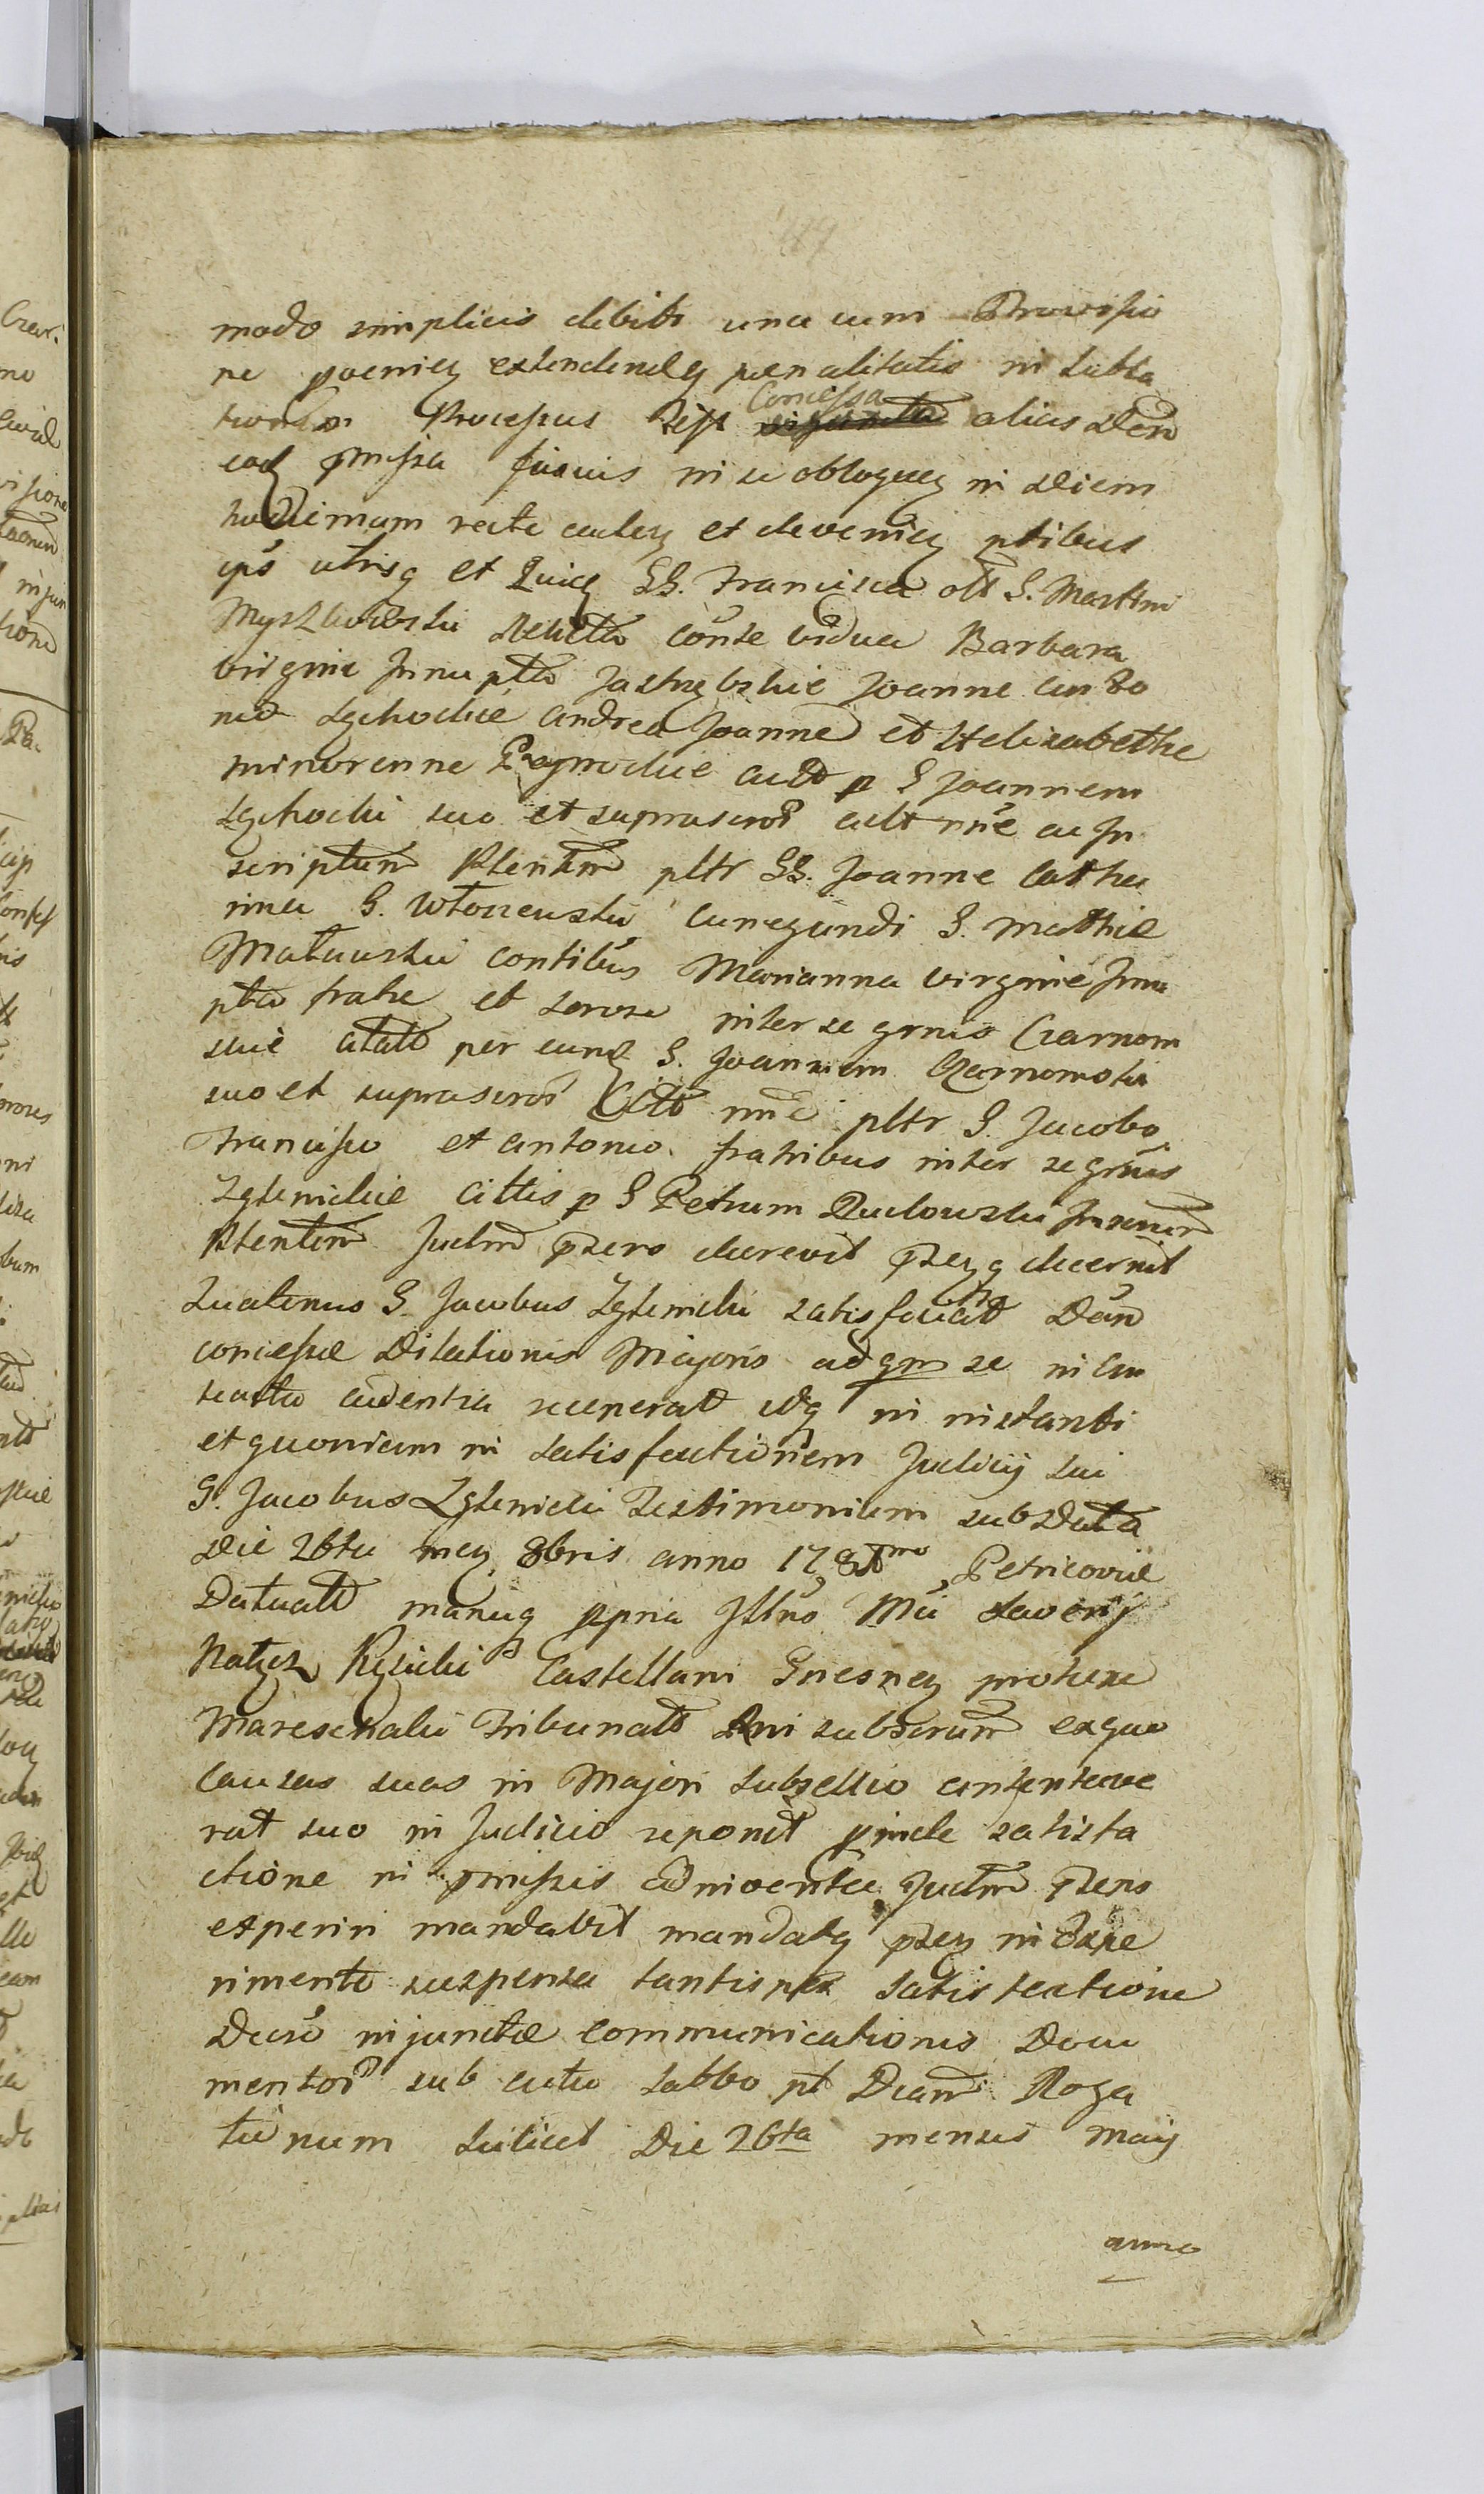 modo simplicis debiti una cum Provisio
ne poenisq extendendisq poenalitatis in subla
tionem Processus Resp Concessa alias Den
eadq pmissa suvis in se obloquq in Diem
hodiernam recte cadenq et devenienq ptibus
ips utrisq et Quidq GG. Francisca olt G. Martini
Myszkowski Relicta conse vidua Barbara
virgine Innupta Jastrzębskie Joanne Anto
nio Lychockie Andrea Joanne et Helisabethe
minorenne Zagrockie actt p G Joannem
Lychocki suo et suprascrot actt nne ac In
scriptum Plentem pltr GG. Joanne Catha
rina G. Włoczewski Cunegundi G. Mathie
Matuuski contibus Marianna virgine Innu
pta fratre et sorore inter se grnis Czarnom
skie Citatt per eund G. Joannem Czarnomski
suo et suprascrot Citt nne pltr G. Jacobo
Francisco et Antonio fratribus inter se grnis
Zglenickie Cittis p G Petrum Rudowski Inscrum
Plentem Judm pzens decrevit pzenq decernit
Quatenus G. Jacobus Zglenicki satisfaciat Dan
concessae Dilationis Majoris ad qm se in Cau
santa audentia receperat idq in instanti
et quoniam in satisfactionem Judicij sui
G. Jacobus Zglenicki Testimonium sub Data
Die 26ta mcy 8bris anno 178 Petricoviae
Datuatt manuq ppria Illns Mci Xaverij
Nałęcz Kęsicki Castellani Gnesnen protunc
Mareschalci Tribunatt Rni subscrum ex quo
Causas suas in Majori subsellio antentave
rat suo in Judicio reponit pinde satisfa
ctione in pmissis adinventa Judm pzens
experiri mandavit mandatq pzenq in Expe
rimento suspensa tantisper satisfactione
Decro injunctae communicationis Docu
mentor sub actu sabbo pt Dcam Roga
tionum scilicet Die 26ta mensis Maij
anno